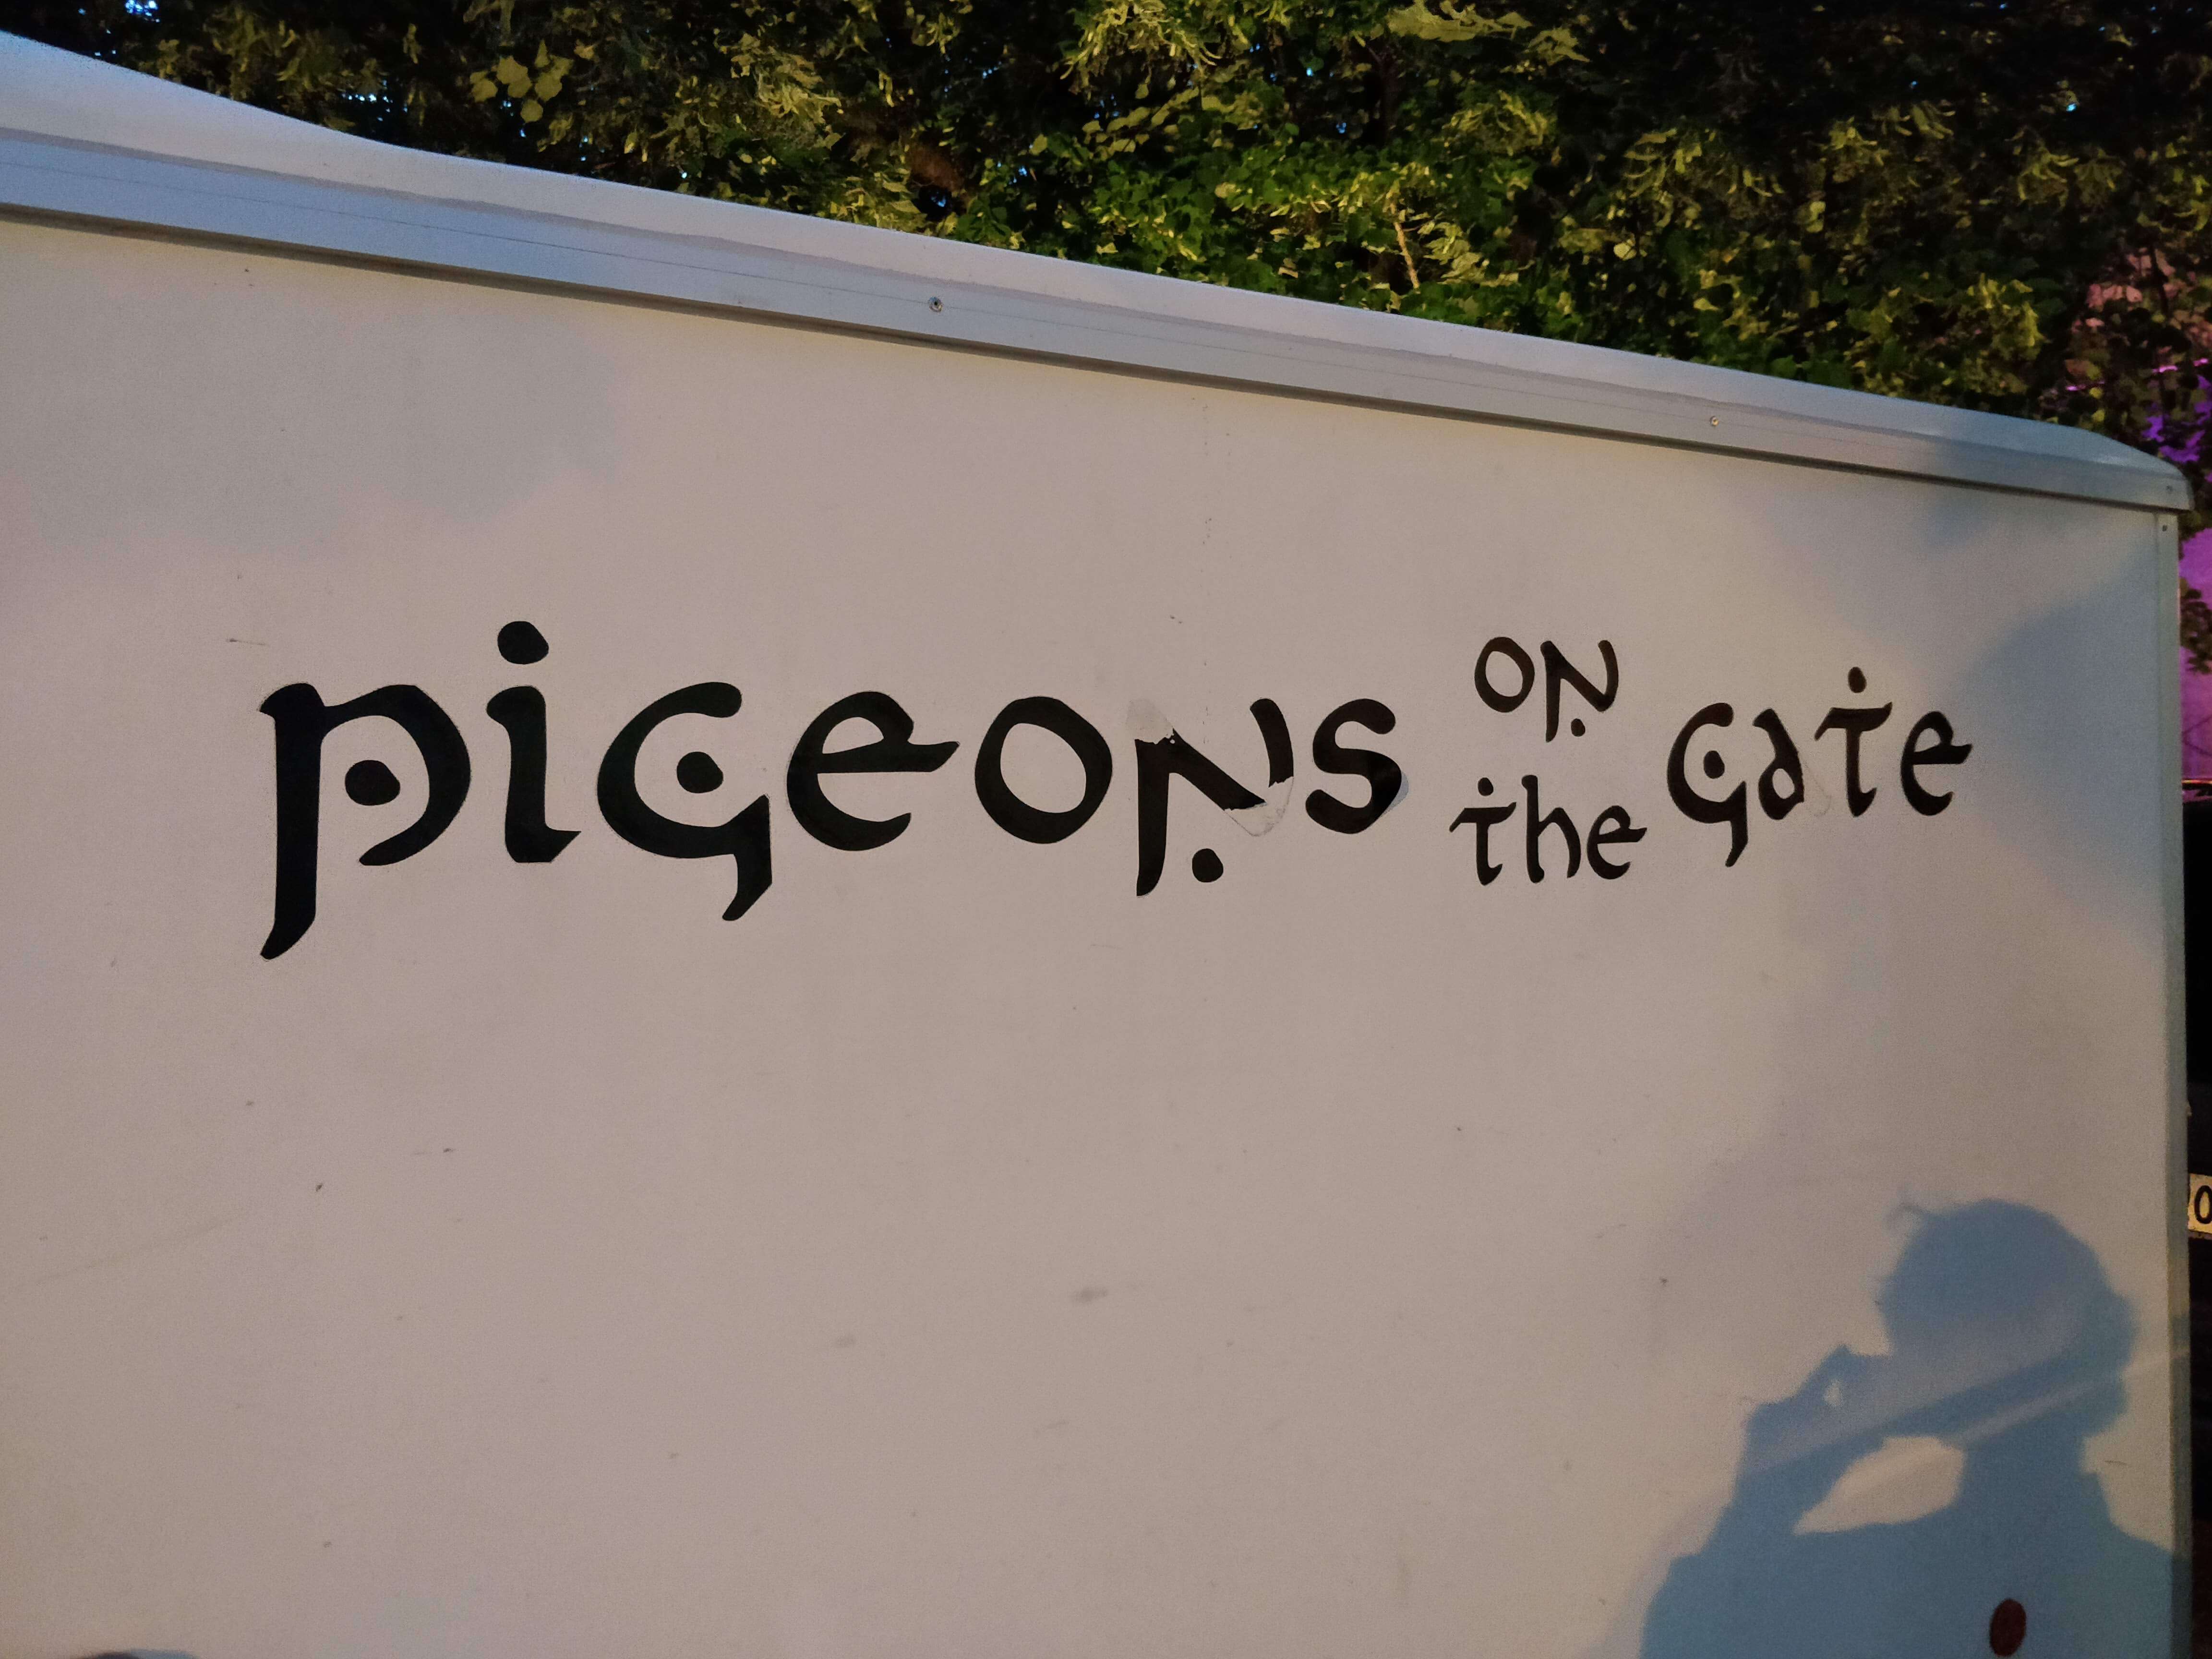 pigeons on the gate
0